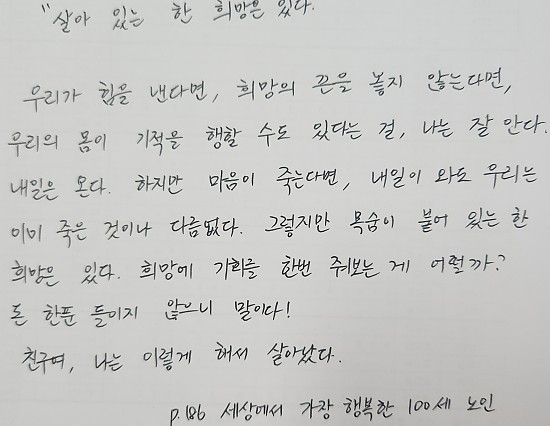 "살아 있는 한 희망은 있다.
우리가 힘을 낸다면, 희망의 끈을 놓지 않는다면,
우리의 몸이 기적을 행할 수도 있다는 걸, 나는 잘 안다.
내일은 온다. 하지만 마음이 죽는다면, 내일이 와도 우리는
이미 죽은 것이나 다름없다. 그렇지만 목숨이 붙어 있는 한
희망은 있다. 희망에 기회를 한번 줘보는 게 어떨까?
돈 한푼 들이지 않으니 말이다!
친구여, 나는 이렇게 해서 살아났다.
p.186 세상에서 가장 행복한 100세 노인